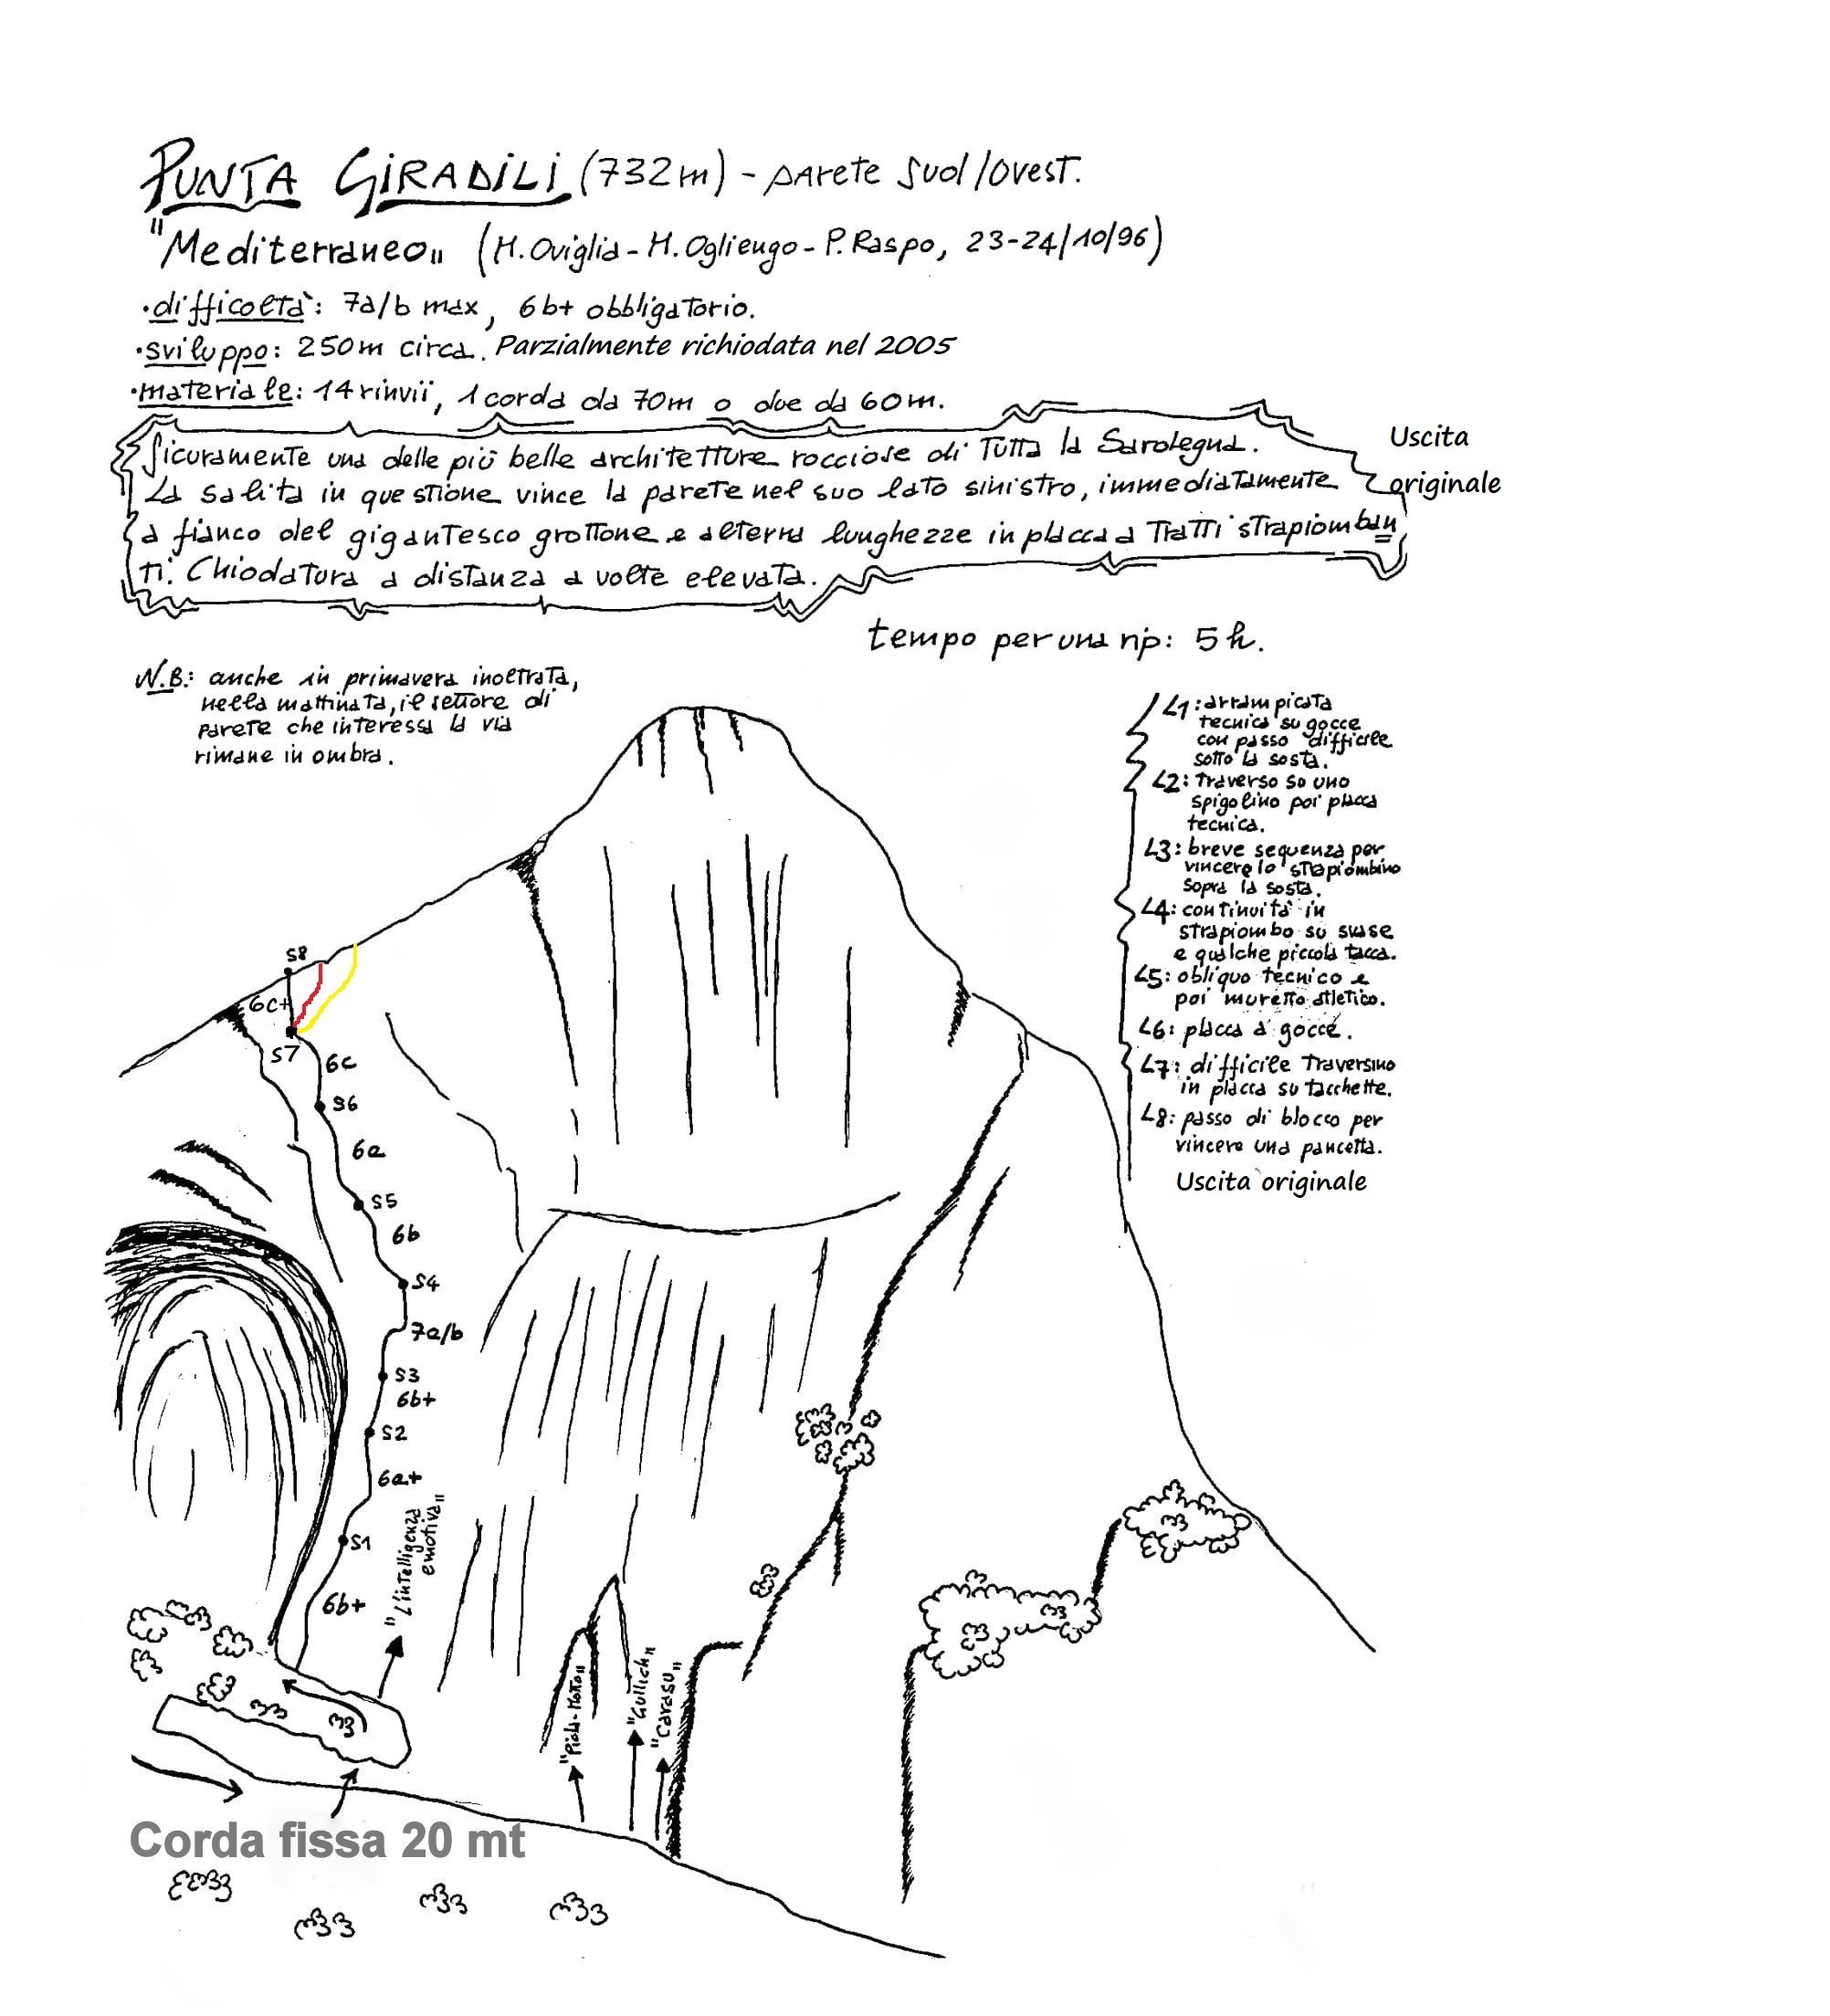 PUNTA GIRADILI (732m) - parete sud/ovest.
"Mediterraneo" (M. Oviglia - M. Ogliengo - P. Raspo, 23-24/10/96)
·difficoltà: 7a/b max, 6b+ obbligatorio.
·sviluppo: 250m circa. Parzialmente richiodata nel 2005
·materiale: 14 rinvii, 1 corda da 70m o due da 60m.
Sicuramente una delle più belle architetture rocciose di tutta la Sardegna.
La salita in questione vince la parete nel suo lato sinistro, immediatamente
a fianco del gigantesco grottone e alterna lunghezze in placca a tratti strapiomban
ti. Chiodatura a distanza a volte elevata.
Uscita
originale
tempo per una rip: 5h.
N.B.: anche in primavera inoltrata,
nella mattinata, il settore di
parete che interessa la via
rimane in ombra.
L1: arrampicata
tecnica su gocce
con passo difficile
sotto la sosta.
L2: traverso su uno
spigolino poi placca
tecnica.
L3: breve sequenza per
vincere lo strapiombino
sopra la sosta.
L4: continuità in
strapiombo su svase
e qualche piccola tacca.
L5: obliquo tecnico e
poi muretto atletico.
L6: placca a gocce.
L7: difficile traversino
in placca su tacchette.
L8: passo di blocco per
vincere una pancetta.
Uscita originale
S8
6c+
S7
6c
S6
6a
S5
6b
S4
7a/b
S3
6b+
S2
6a+
S1
6b+
"L'intelligenza
emotiva"
"Piola-Motto"
"Gullich"
"Carasu"
Corda fissa 20 mt